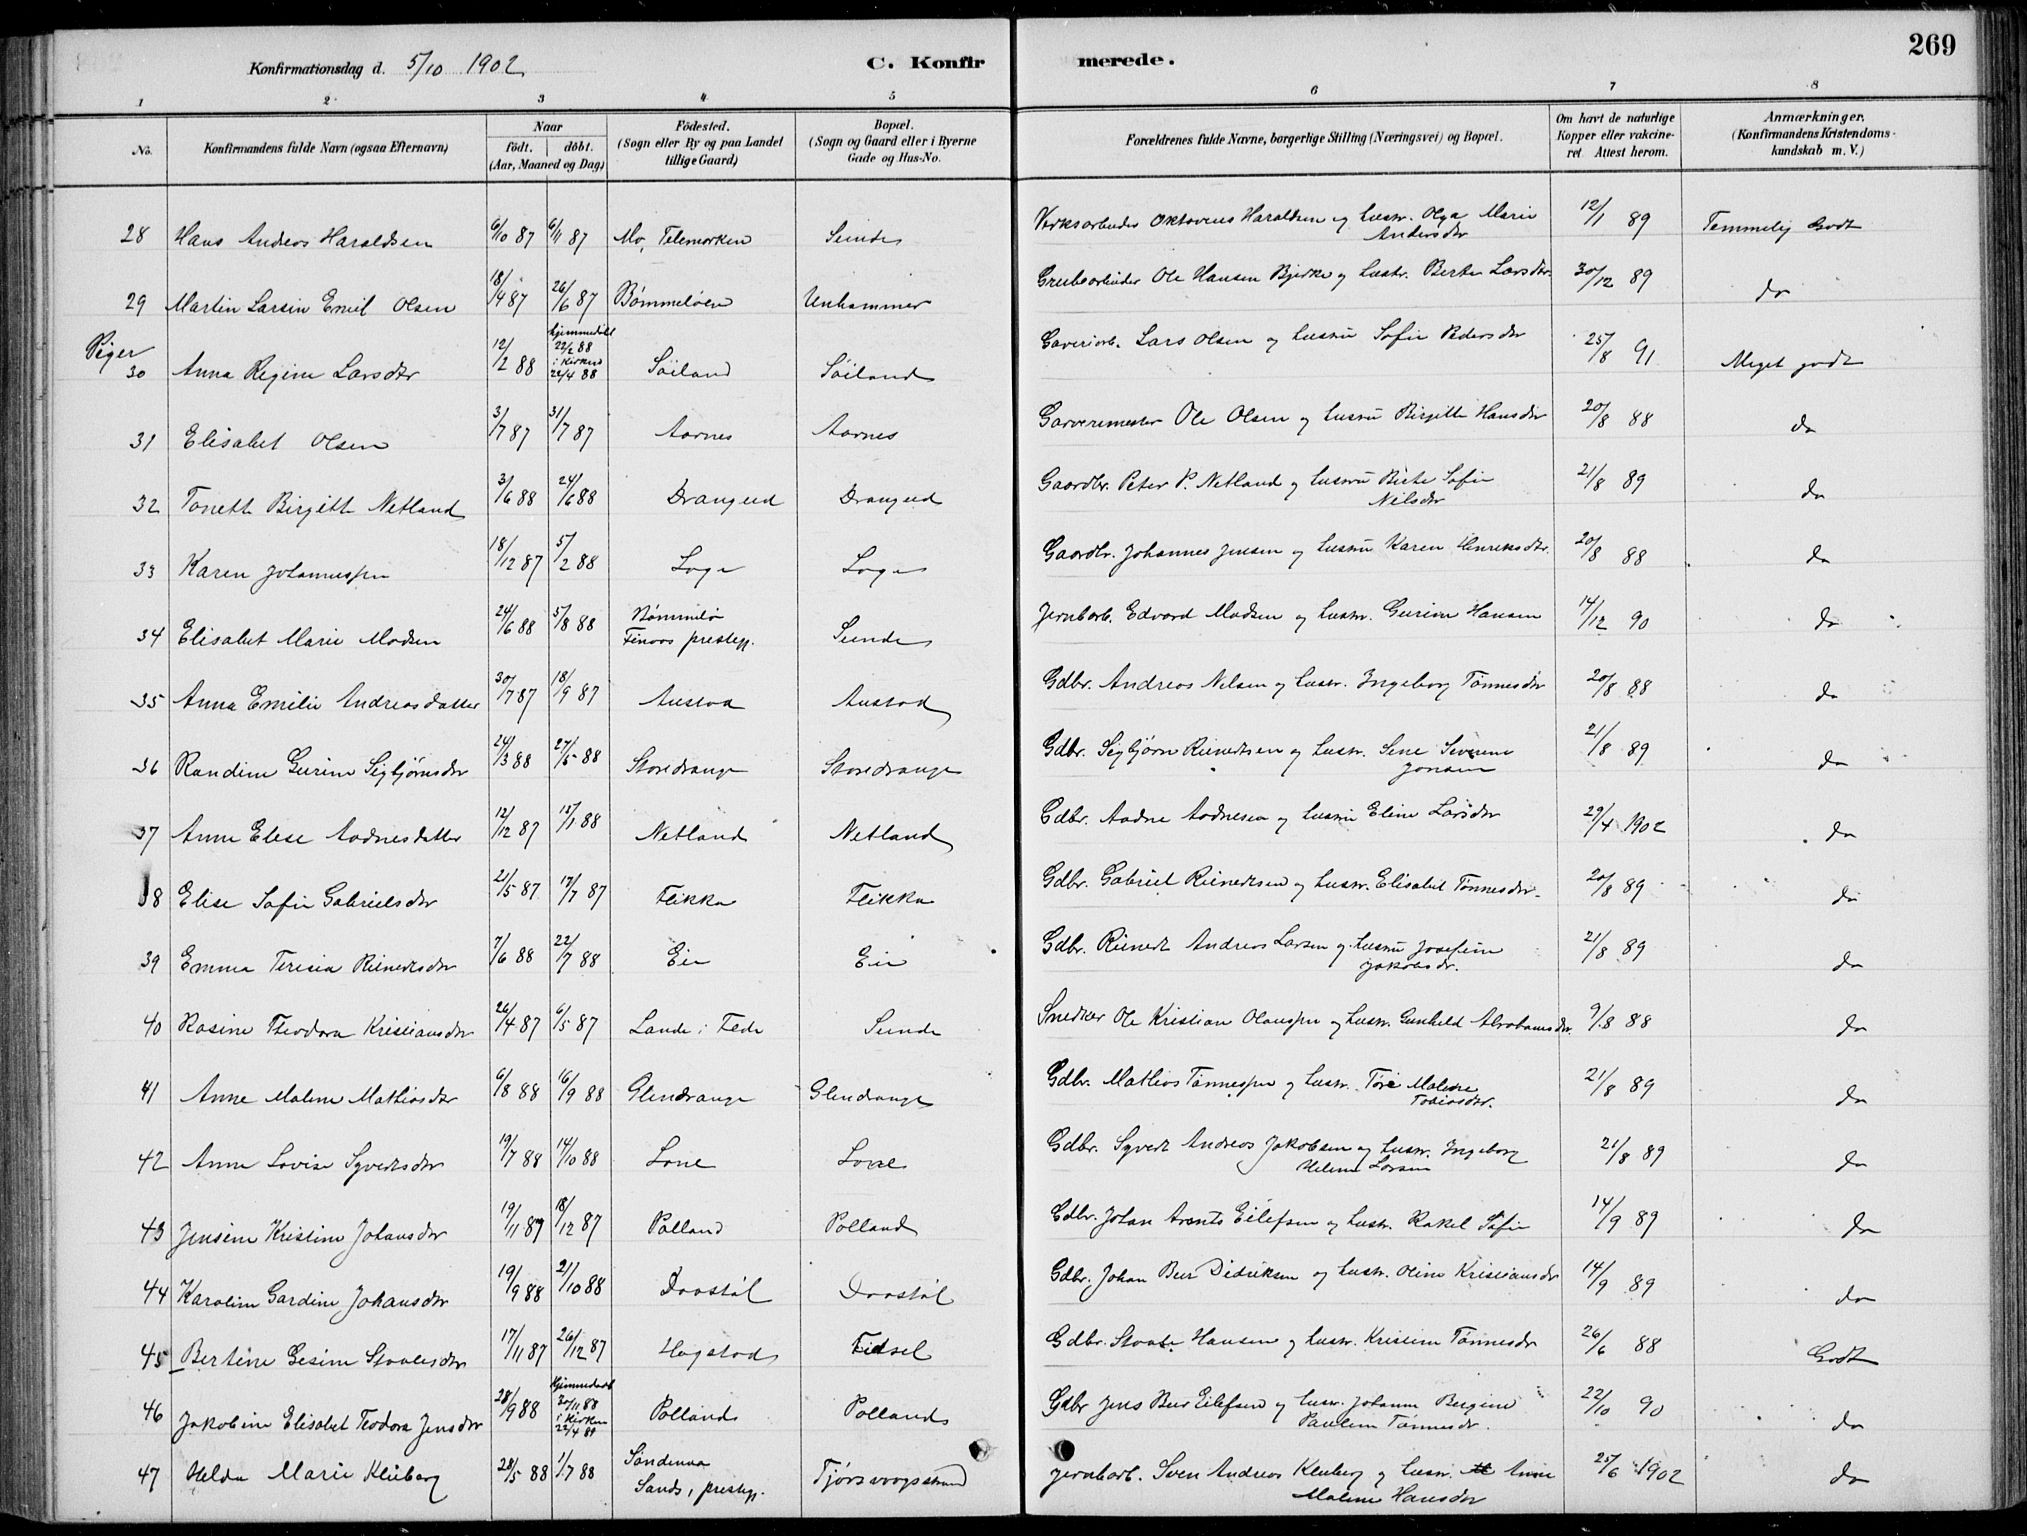 269
Konfirmationsdag d. 5/10 1902
C. Konfirmerede.
1 2 3 4 5 6 7 8
No. Konfirmandens fulde Navn (ogsaa Efternavn) Naar født. døbt. (Aar, Maaned og Dag) Fødested. (Sogn eller By og paa Landet tillige Gaard) Bopæl. (Sogn og Gaard eller i Byerne Gade og Hus-No. Forældrenes fulde Navne, borgerlige Stilling (Næringsvei) og Bopæl. Om havt de naturlige Kopper eller vakcineret. Attest herom. Anmærkninger. (Konfirmandens Kristendomskundskab m. V.)
28 Hans Andreas Haraldsen 6/10 87 6/11 87 Mo, Telemarken Sunde Verksarbeider Oktavius Haraldsen og hustr. Olga Marie Andersdtr 12/1 89 Temmelig Godt
29 Martin Larsin Emil Olsen 18/4 87 26/6 87 Bømmeløen Unhammer Grubearbeider Ole Hansen Bjerke og hustr. Berte Larsdtr. 30/12 89 do
Piger
30 Anna Regine Larsdtr 12/2 88 hjemmedøbt 22/2 88 i Kirken 22/4 88 Søiland Søiland Garveriarb. Lars Olsen og hustru Sofie Pedersdtr 25/8 91 Meget godt
31 Elisabet Olsen 3/7 87 31/7 87 Aarnes Aarnes Garvermester Ole Olsen og hustru Birgitte Hansdtr 20/8 88 do
32 Tonette Birgitte Netland 3/6 88 24/6 88 Drangeid Drangeid Gaardbr. Peter P. Netland og hustru Birte Sofie Nilsdtr 21/8 89 do
33 Karen Johannessen 18/12 87 5/2 88 Loge Loge Gaardbr. Johannes Jensen og hustru Karen Henriksdtr. 20/8 88 do
34 Elisabet Marie Madsen 24/6 88 5/8 88 Bømmelø Finaas prestegj. Sunde Jernbarb. Edvard Madsen og hustr. Gurine Hansen 14/12 90 do
35 Anna Emilie Andreasdatter 30/7 87 18/9 87 Austad Austad Gdbr. Andreas Nilsen og hustr. Ingeborg Tønnesdtr 20/8 88 do
36 Randine Gurine Sigbjørnsdtr 24/3 88 27/5 88 Storedrange Storedrange Gdbr. Sigbjørn Reinertsen og hustr. Sine Severine Jonsen 21/8 89 do
37 Anne Elese Aadnesdatter 12/12 87 /1 88 Netland Netland Gdbr. Aadne Aadnesen og hustru Eline Larsdtr 29/4 1902 do
38 Elise Sofie Gabrielsdtr 21/5 87 17/7 87 Flikka Flikka Gdbr. Gabriel Reinertsen og hustr. Elisabet Tønnesdtr. 20/8 89 do
39 Emma Teresia Reinertsdtr 7/6 88 22/7 88 Eie Eie Gdbr. Reinert Andreas Larsen og hustru Josefine Jakobsdtr. 21/8 89 do
40 Rasine Theodora Kristiansdtr 26/4 87 6/5 87 Lande i Fede Sunde Snedker Ole Kristian Olaussen og hustr. Gunhild Abrahamsdtr. 9/8 88 do
41 Anne Malene Mathiasdtr 6/8 88 16/9 88 Glendrange Glendrange Gdbr. Mathias Tønnessen og hustr. Tore Malene Tobiasdtr. 21/8 89 do
42 Anne Lovise Syvertsdtr 19/7 88 14/10 88 Lone Lone Gdbr. Syvert Andreas Jakobsen og hustr. Ingeborg Helene Larsen 21/8 89 do
43 Jensine Kristine Johansdtr 19/11 87 18/12 87 Polland Polland Gdbr. Johan Arents Eilefsen og hustr. Rakel Sofie 14/9 89 do
44 Karoline Gardine Johansdtr 19/9 88 21/10 88 Daastøl Daastøl Gdbr. Johan Beer Didriksen og hustr. Oline Kristiansdtr 14/9 89 do
45 Bertine Gesine Staalesdtr 17/11 87 26/12 87 Høgstad Fidsel Gdbr. Staale Hansen og hustr. Kristine Tønnesdtr 26/6 88 Godt
46 Jakobine Elisabet Teodora Jensdtr 28/9 88 hjemmedøbt 20/11 88 i Kirken 22/4 89 Polland Polland Gdbr Jens Beer Eilefsen og hustr. Johanne Bergine Pauline Tønnesdtr. 22/10 90 do
47 Helda Marie Kleiberg 28/5 88 1/7 88 Søndenaa Sands, prestegj. Tjørsvaagstrand Jernbarb. Sven Andreas Kleiberg og hustr. Anne Malene Hansdtr 25/6 1902 do